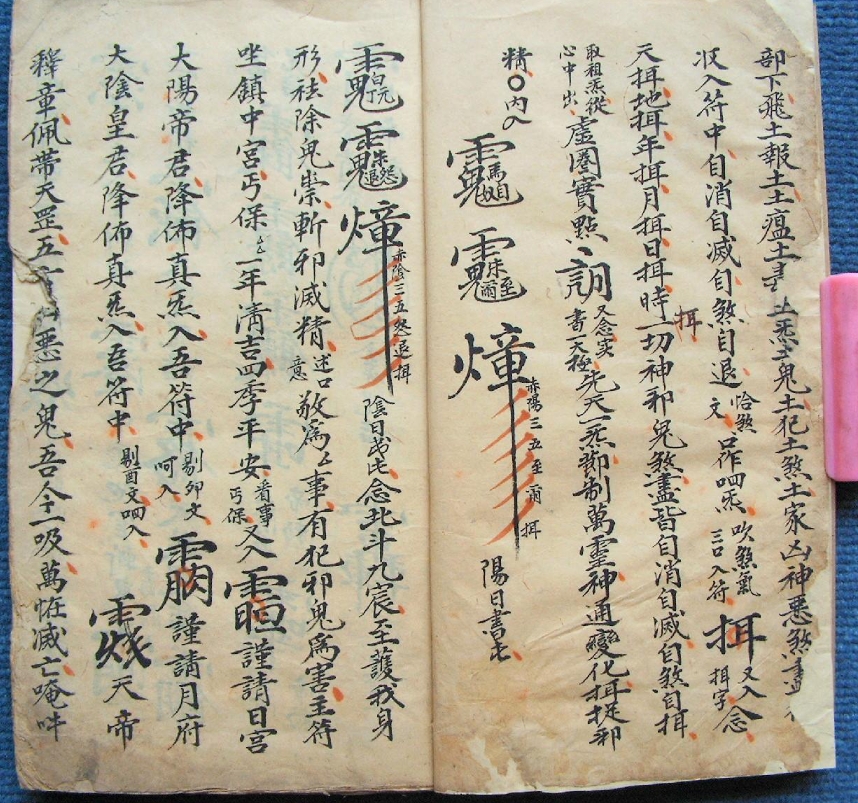 部下飛土報土土瘟土土炁土鬼土犯土煞土家凶神惡煞盡
収入符中自消自滅自煞自退文恰煞口作呬炁吹煞氣三口入符挕又入念挕字
天挕地挕年挕月挕日挕時挕一切神邪鬼煞盡皆自消自滅自煞自挕
取祖炁從心中出虛圈實點又念実書一大極先天一炁抑制萬靈神通變化挕捉邪
精〇內入
赤陽三五至爾挕陽日書
赤陰三五怨退挕陰日念北斗九宸至護我身
形祛除鬼祟斬邪滅精述口意敬為事有犯邪鬼為害主符
坐鎮中宮丐保一年清吉四季平安看事丐保又入謹請日宮
大陽帝君降佈真炁入吾符中剔卯文呵入謹請月府
大陰皇君降佈真炁入吾符中剔酉文呬入天帝
釋章佩帶天罡五惡之鬼吾今一吸萬怪滅亡唵吽